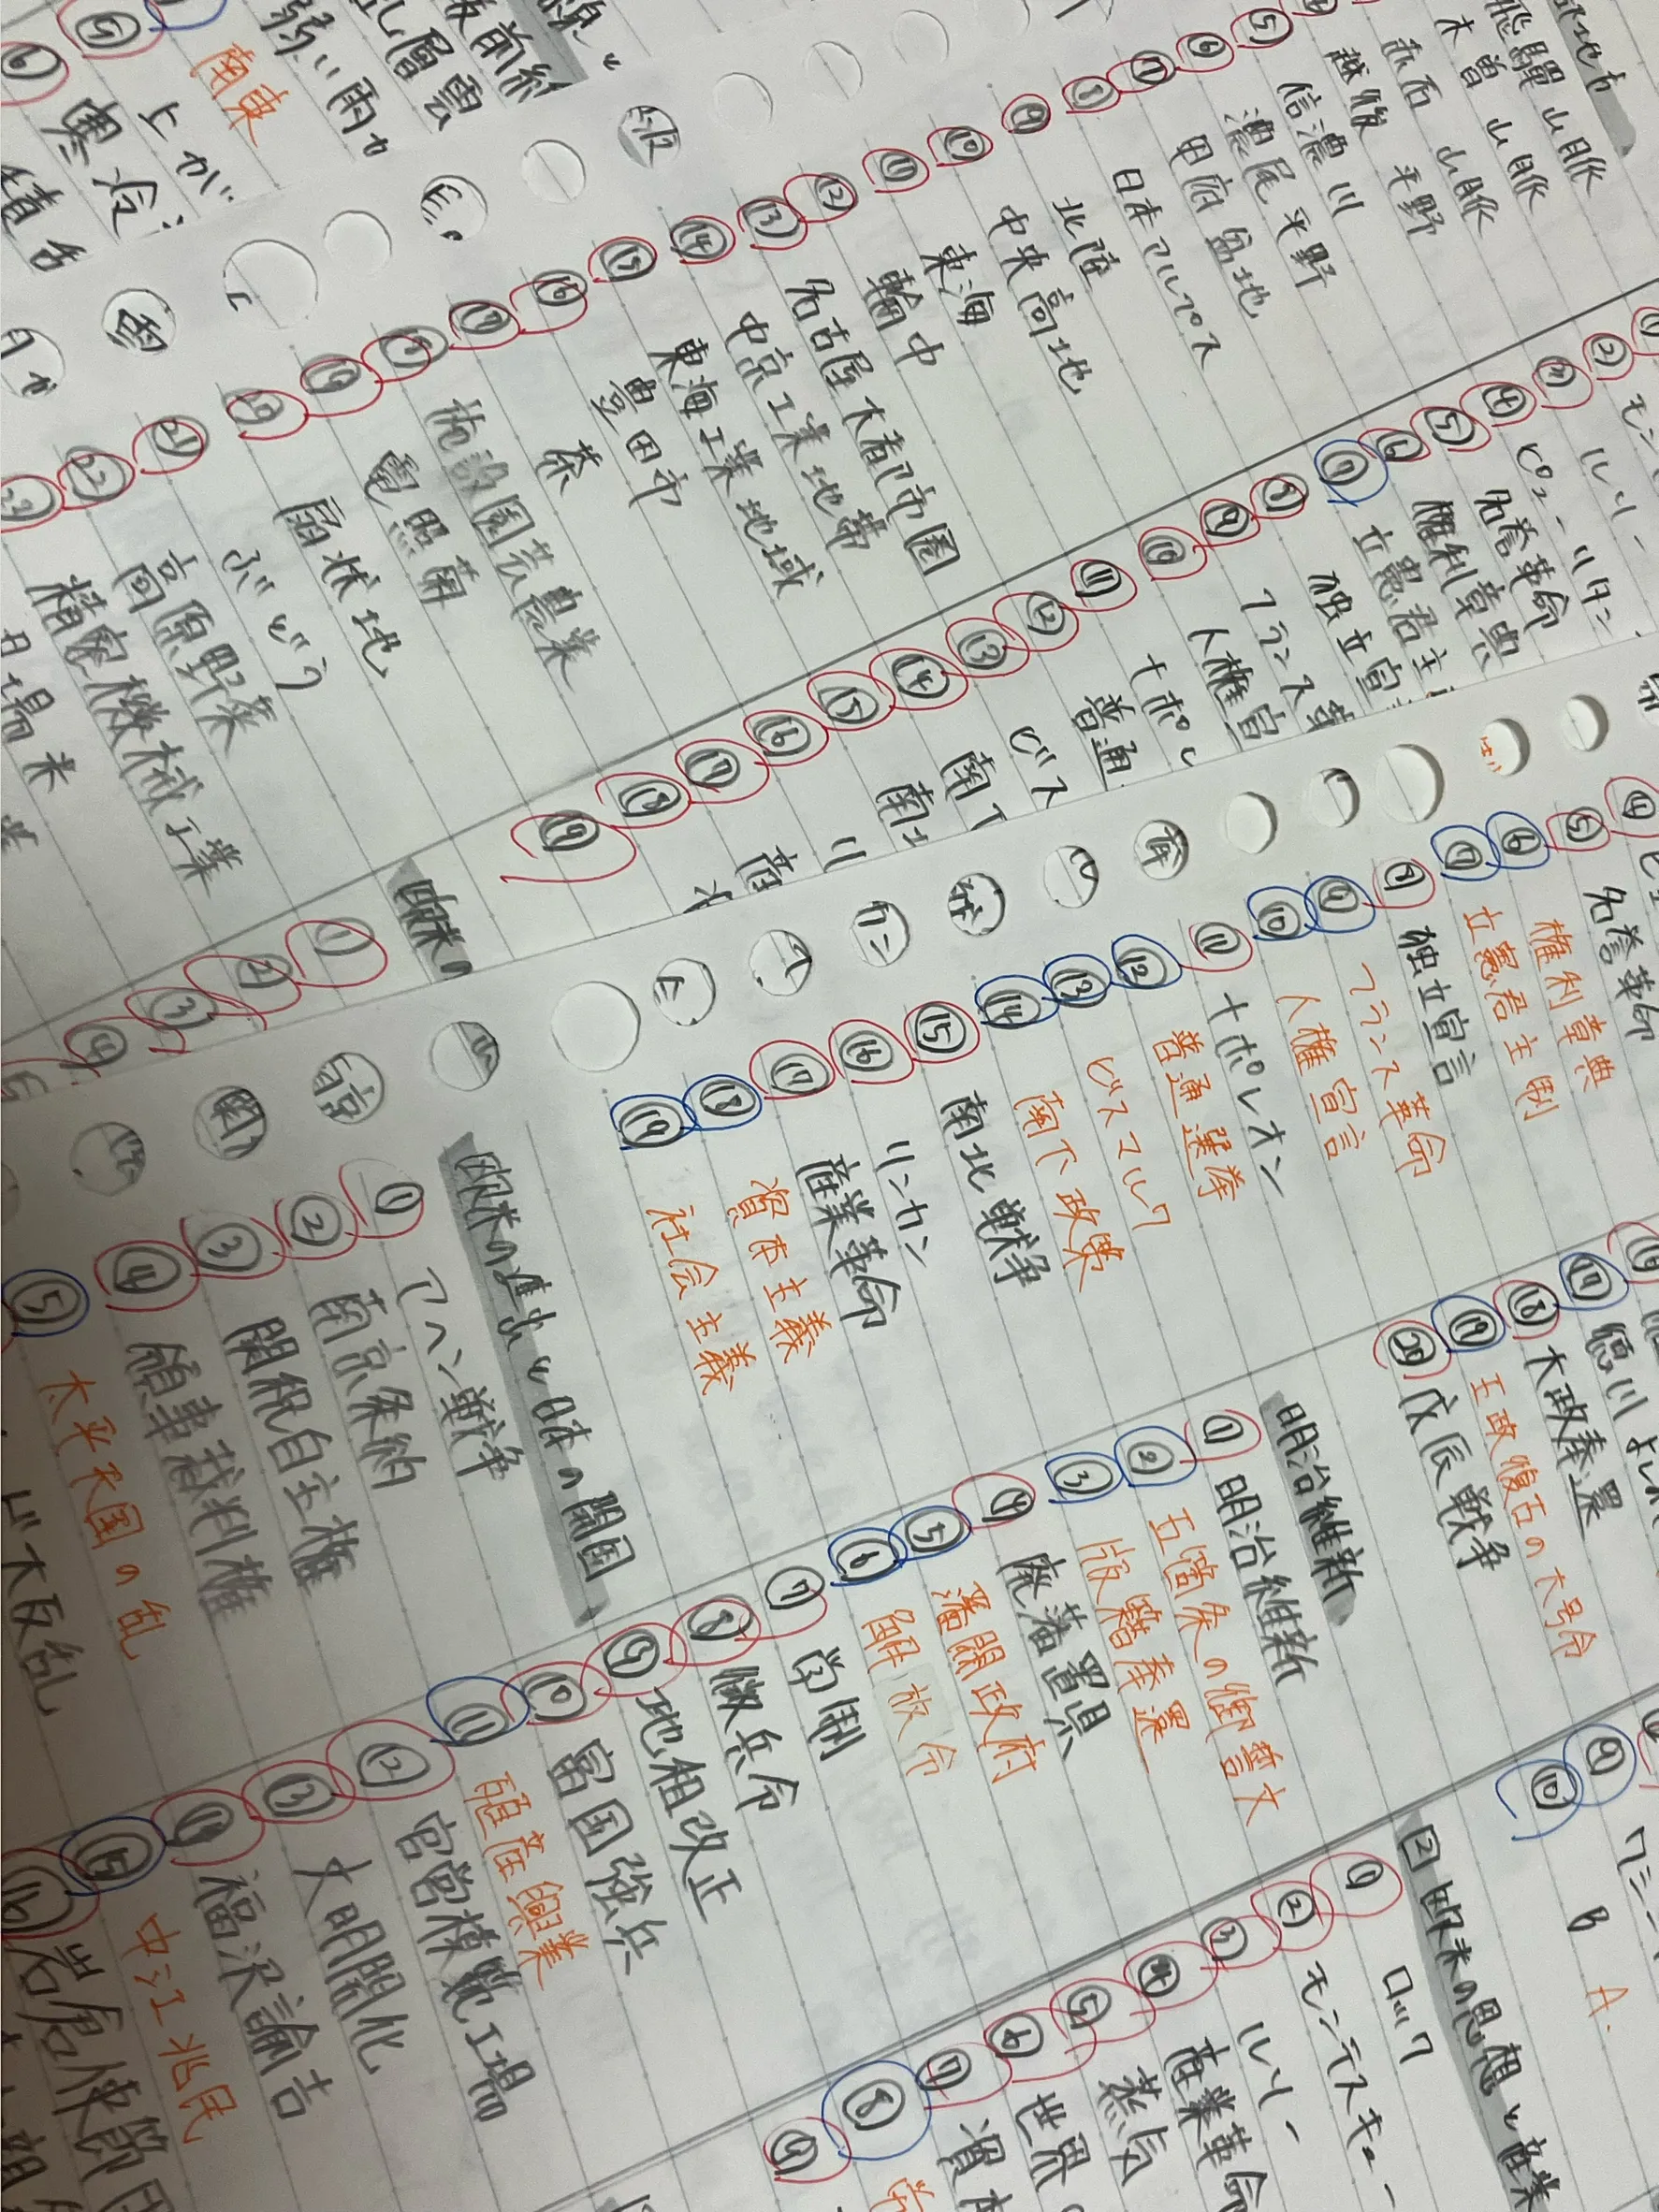 南東
弱い雨
乱層雲
上が
寒冷
飛驒山脈
木曽山脈
赤石山脈
越後平野
⑤ 信濃川
⑥ 濃尾平野
⑦ 甲府盆地
日本アルプス
⑨ 北陸
⑩ 中央高地
⑪ 東海
⑫ 輪中
⑬ 名古屋大都市圏
⑭ 中京工業地帯
⑮ 東海工業地域
⑯ 豊田市
⑰ 茶
⑱ 施設園芸農業
⑲ 電照菊
⑳ 扇状地
㉑ ぶどう
㉒ 高原野菜
㉓ 精密機械工業
① モン
② ルソー
③ ピューリタン
④ 名誉革命
⑤ 権利章典
⑥ 立憲君主
⑦ 独立宣
⑧ フランス革
⑨ 人権宣
⑩ ナポレ
⑪ 普通
⑫ ビス
⑬ 南下
⑭ 南北
⑮ リ
⑯ 産
⑰
⑱
⑲
欧米の
①
②
③
④
④
⑤ 名誉革命
⑥ 権利章典
⑦ 立憲君主制
⑧ 独立宣言
⑨ フランス革命
⑩ 人権宣言
⑪ ナポレオン
⑫ 普通選挙
⑬ ビスマルク
⑭ 南下政策
⑮ 南北戦争
⑯ リンカン
⑰ 産業革命
⑱ 資本主義
⑲ 社会主義
欧米の進出と日本の開国
① アヘン戦争
② 南京条約
③ 関税自主権
④ 領事裁判権
⑤ 太平天国の乱
ド大反乱
⑯ 徳川よし
⑰
⑱ 大政奉還
⑲ 王政復古の大号令
⑳ 戊辰戦争
明治維新
① 明治維新
② 五箇条の御誓文
③ 版籍奉還
④ 廃藩置県
⑤ 藩閥政府
⑥ 解放令
⑦ 学制
⑧ 徴兵令
⑨ 地租改正
⑩ 富国強兵
⑪ 殖産興業
⑫ 官営模範工場
⑬ 文明開化
⑭ 福沢諭吉
⑮ 中江兆民
⑯ 岩倉使節団
⑨ ワシン
⑩ B A.
2 欧米の思想と産業
① ロック
② モンテスキュー
③ ルソー
④ 産業革命
⑤ 蒸気
⑥ 世界
⑦ 資本
⑧
⑨